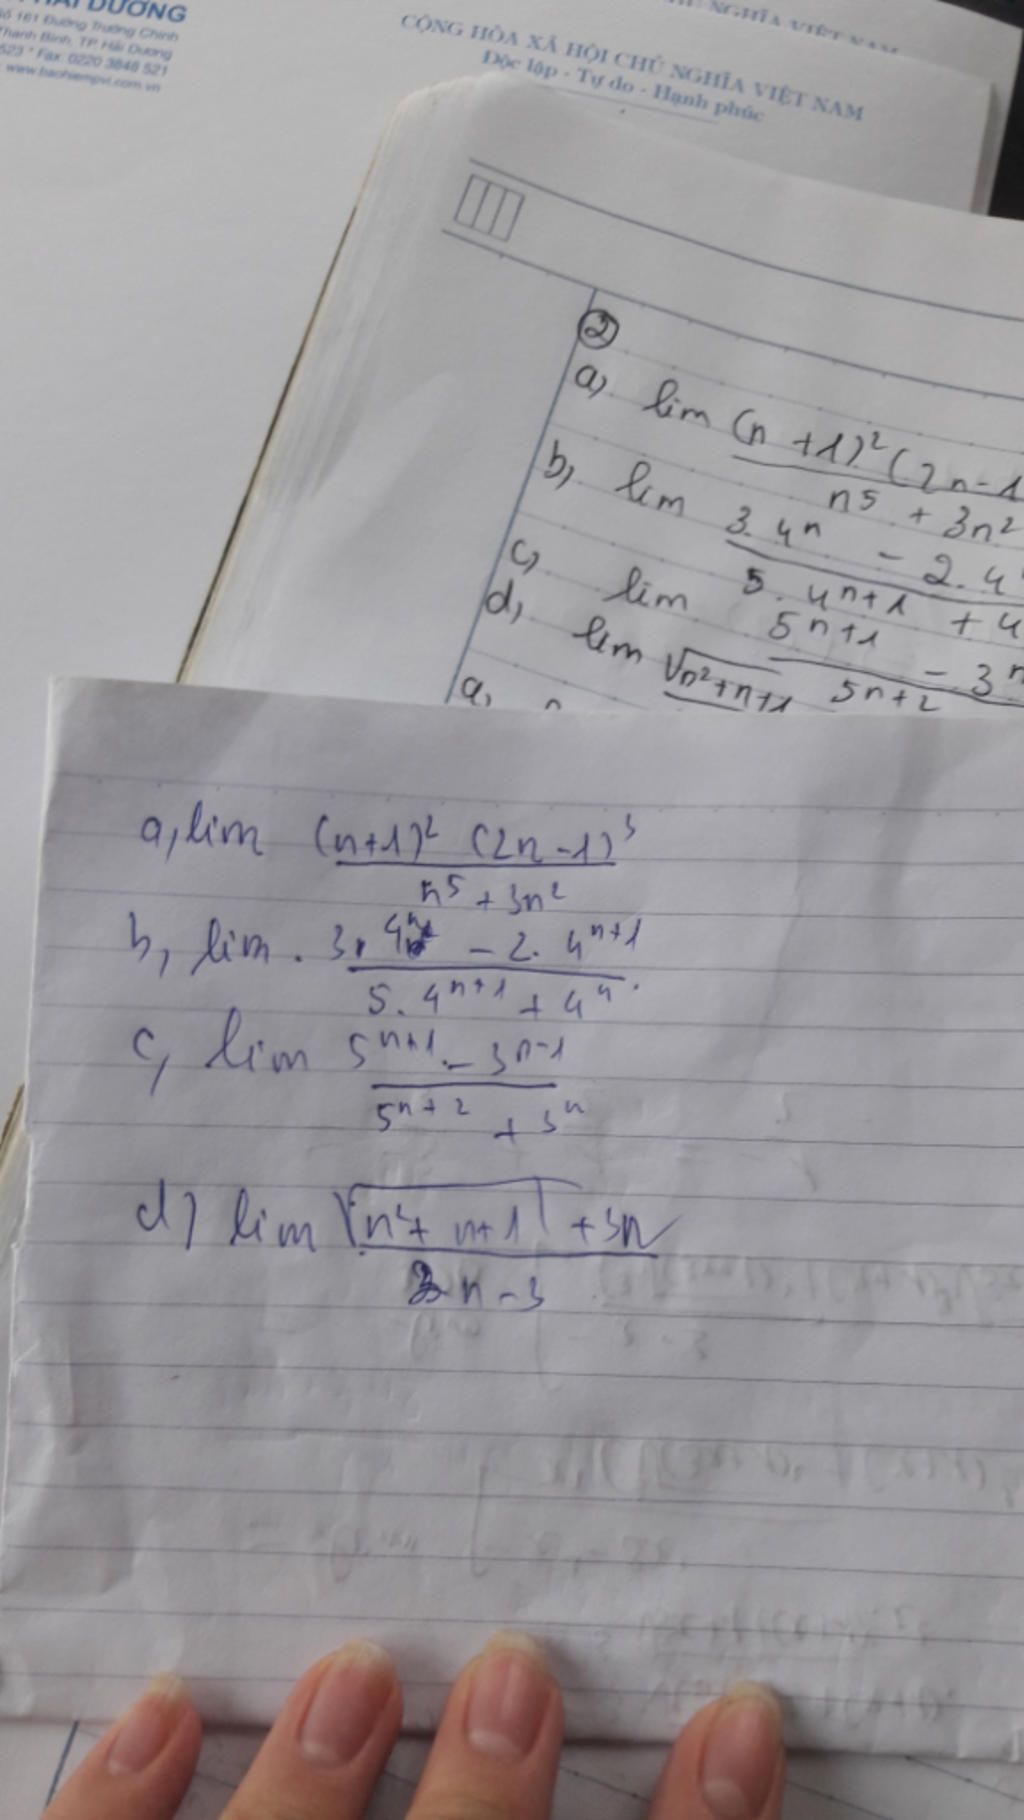 HẢI DƯƠNG
Số 161 Đường Trường Chinh
Thanh Bình, TP Hải Dương
523 * Fax: 0220 3848 521
www.baohiempvi.com.vn
NGHĨA VIỆT NAM
CỘNG HÒA XÃ HỘI CHỦ NGHĨA VIỆT NAM
Độc lập - Tự do - Hạnh phúc
②
a, lim (n+1)²(2n-1
n5 + 3n²
b, lim 3.4ⁿ - 2.4
5.4ⁿ⁺¹ + 4
c, lim 5ⁿ⁺¹ - 3ⁿ
5n+2
d, lim √n²+n+1
a,
a, lim (n+1)² (2n-1)³
n⁵ + 3n²
b, lim . 3. 4ⁿ - 2. 4ⁿ⁺¹
5. 4ⁿ⁺¹ + 4ⁿ.
c, lim 5ⁿ⁺¹ - 3ⁿ⁻¹
5ⁿ⁺² + 3ⁿ
d) lim √n²+ n+1 + 3n
n - 3